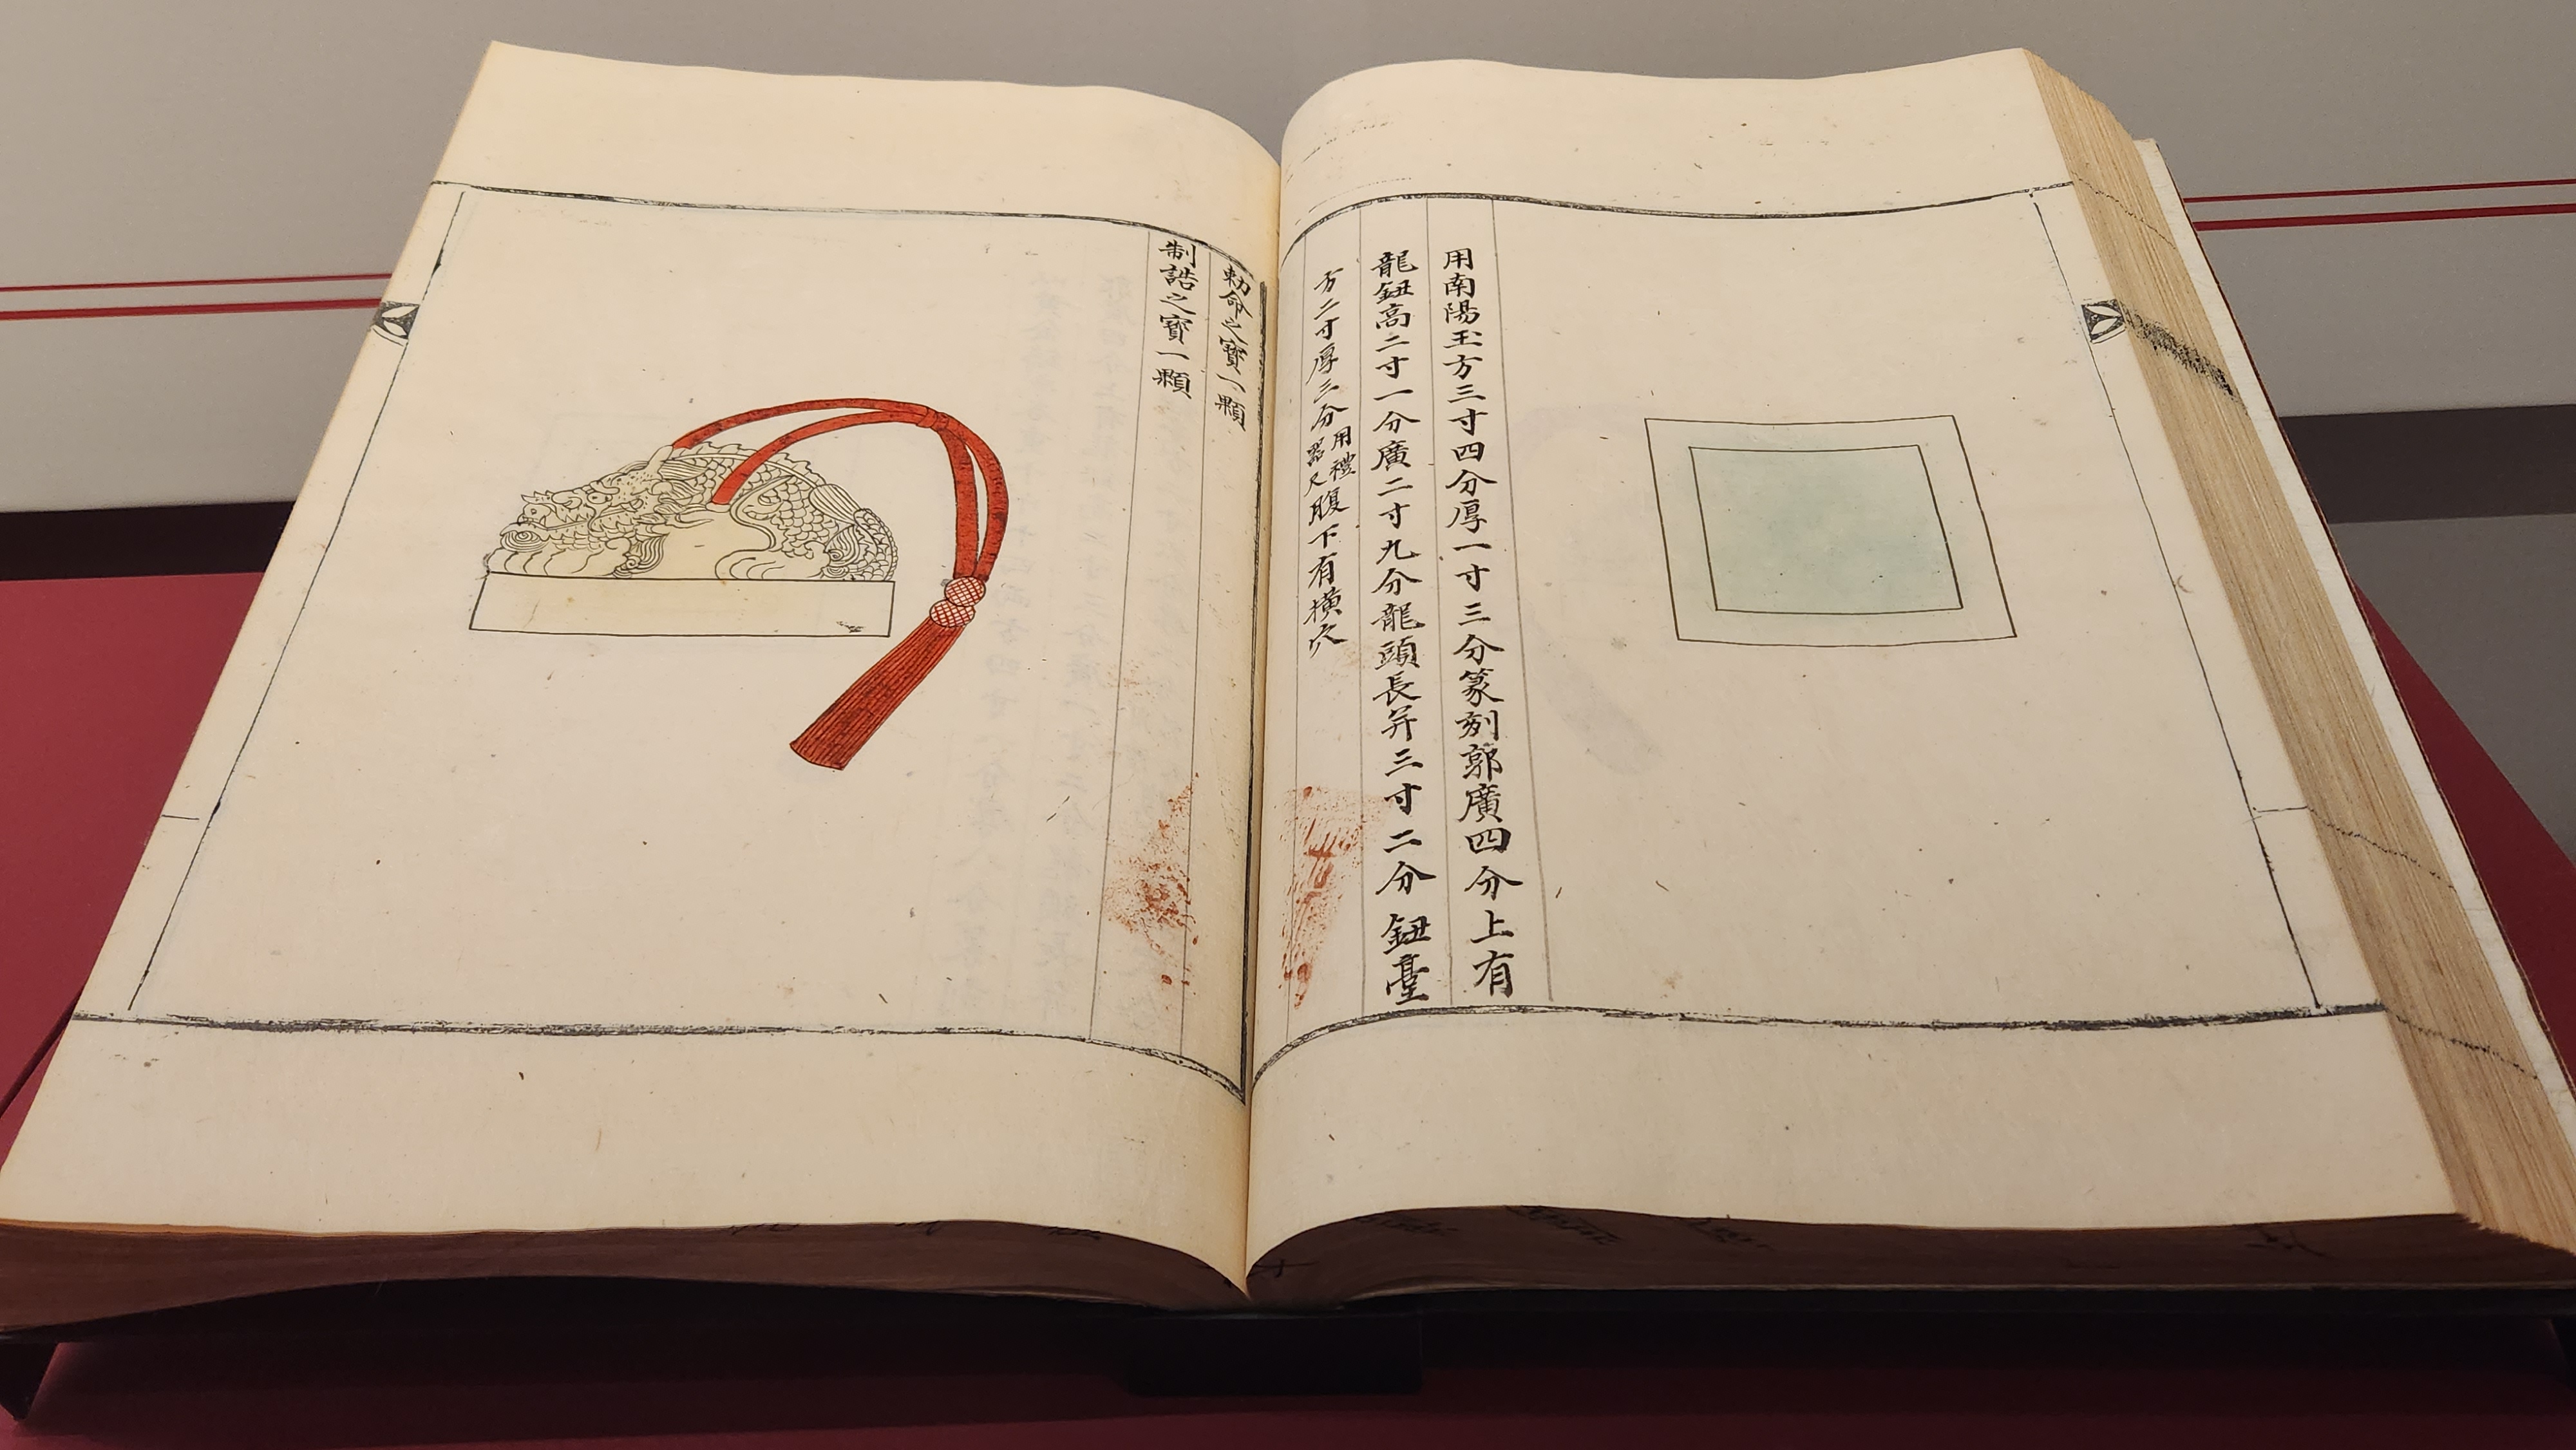 用南陽玉方三寸四分厚一寸三分篆刻郭廣四分上有
龍鈕高二寸一分廣二寸九分龍頭長并三寸二分鈕臺
方二寸厚三分用禮器尺腹下有橫穴
勅命之寶一顆
制誥之寶一顆